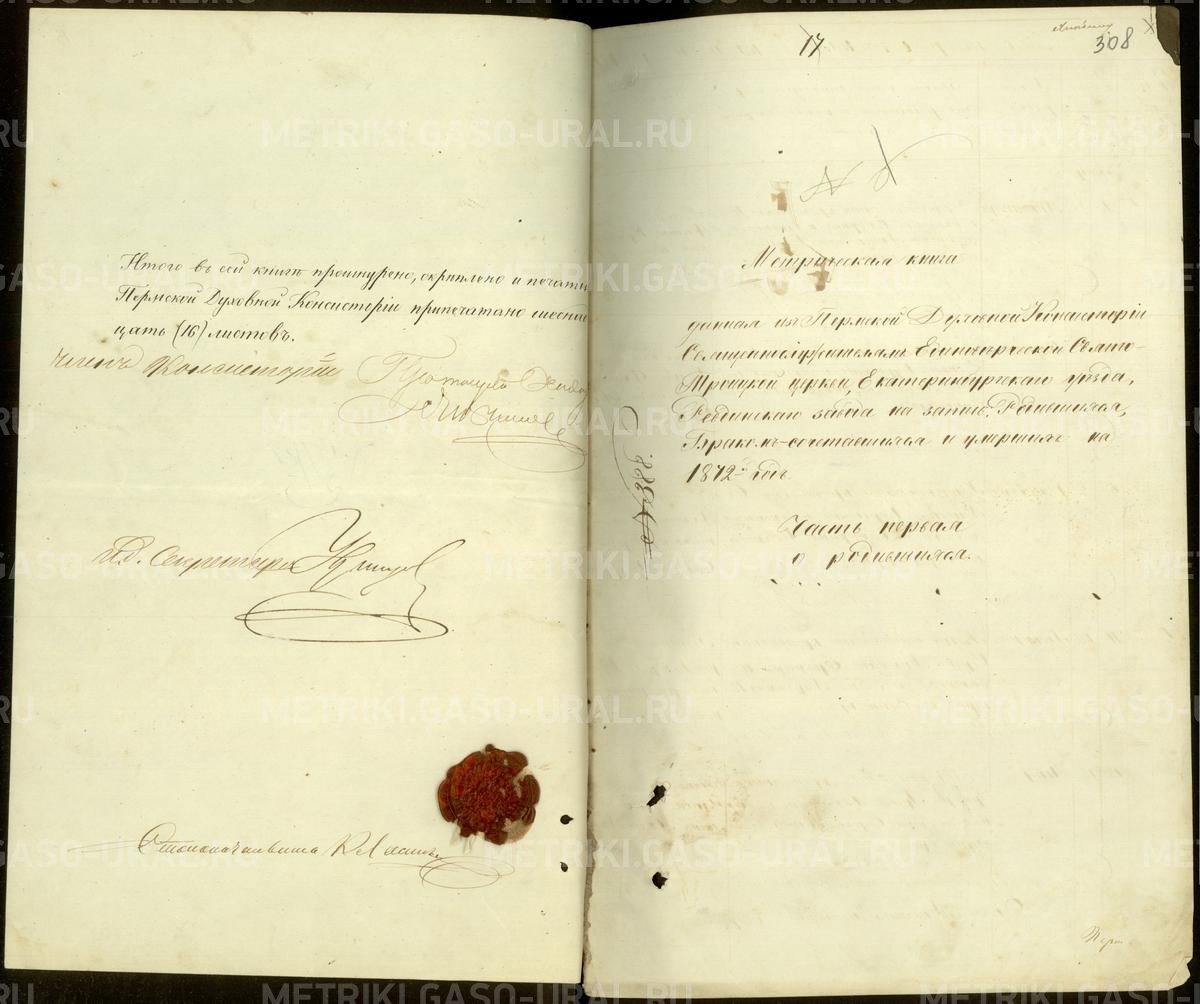 Итого въ сей книгѣ прошнурено, скрѣплено и печатью
Пермской Духовной Консисторіи припечатано шестнад-
цать (16) листовъ.
Членъ Консисторіи
И.д. Секретаря
Столоначальника
17
308
№
Метрическая книга
данная изъ Пермской Духовной Консисторіи
Священнослужителямъ Единовѣрческой Свято-
Троицкой церкви, Екатеринбургскаго уѣзда,
Ревдинскаго завода на запись Родившихся,
Бракомъ-сочетавшихся и умершихъ на
1872й годъ.
Часть первая
о родившихся.
№388.
METRIKI.GASO-URAL.RU